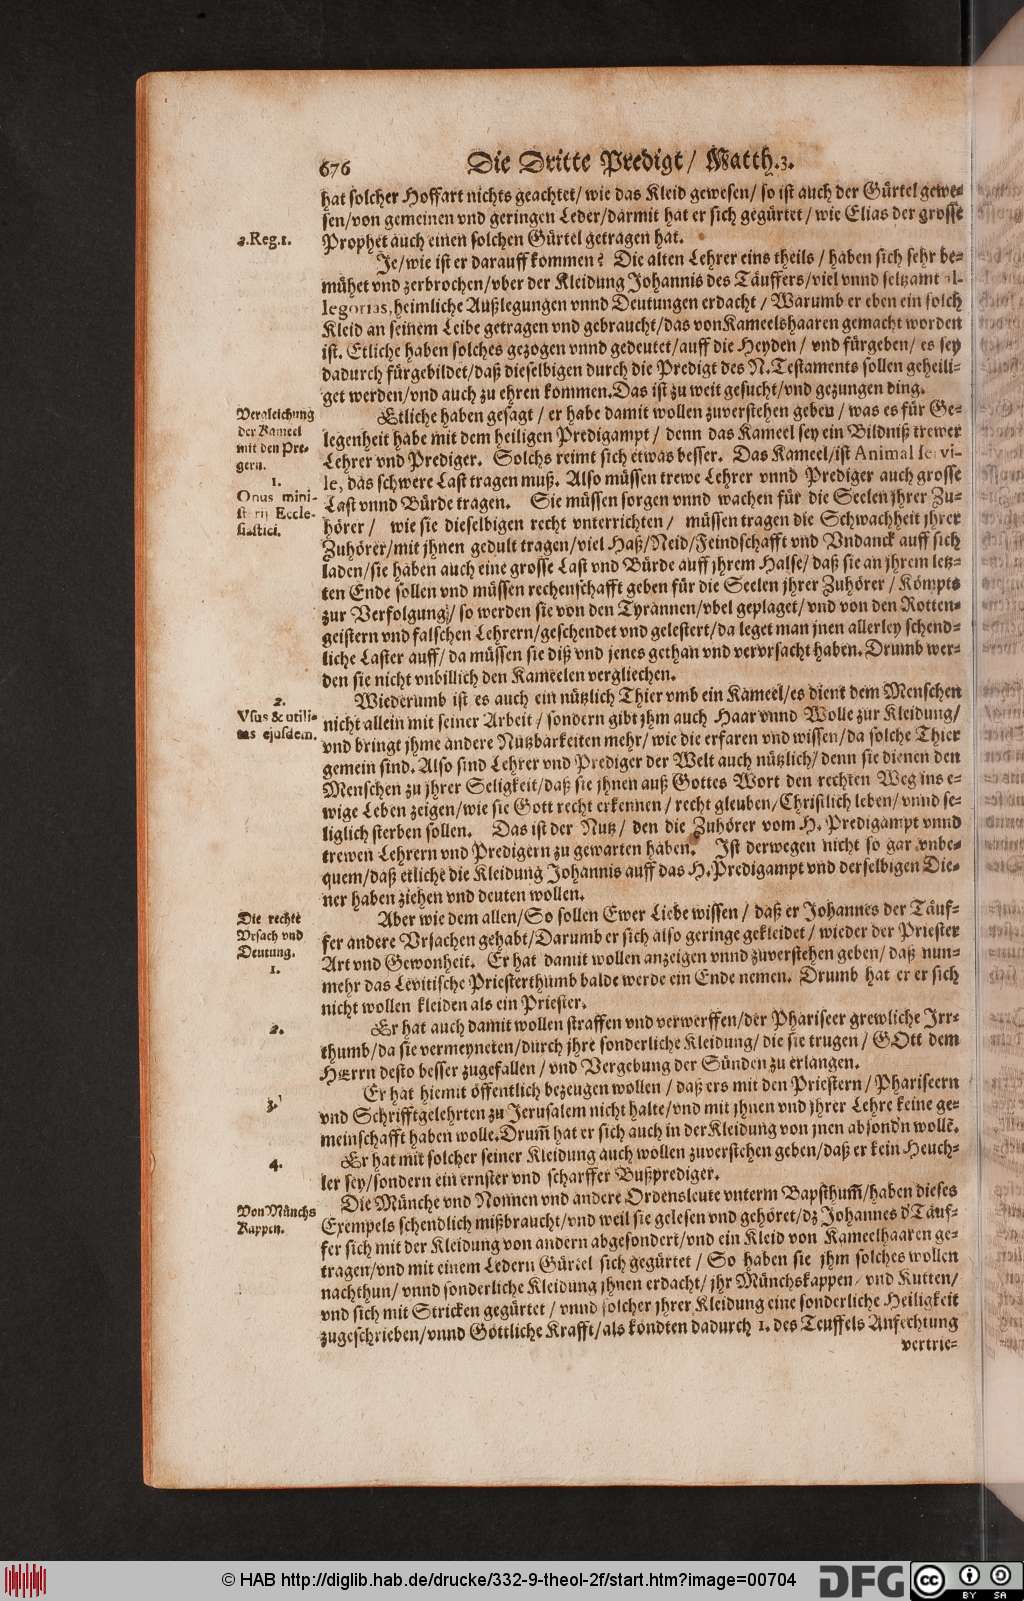 676 Die Dritte Predigt/ Matth.3.
hat solcher Hoffart nichts geachtet/ wie das Kleid gewesen/ so ist auch der Gürtel gewe-
sen/von gemeinen vnd geringen Leder/darmit hat er sich gegürtet/ wie Elias der grosse
2.Reg.1.
Prophet auch einen solchen Gürtel getragen hat.
Je/wie ist er darauff kommen? Die alten Lehrer eins theils/ haben sich sehr be-
mühet vnd zerbrochen/vber der Kleidung Johannis des Täuffers/viel vnnd seltzamt al-
legorias, heimliche Außlegungen vnnd Deutungen erdacht/ Warumb er eben ein solch
Kleid an seinem Leibe getragen vnd gebraucht/das von Kameelshaaren gemacht worden
ist. Etliche haben solches gezogen vnnd gedeutet/auff die Heyden/ vnd fürgeben/ es sey
dadurch fürgebildet/daß dieselbigen durch die Predigt des N.Testaments sollen geheili-
get werden/vnd auch zu ehren kommen.Das ist zu weit gesucht/vnd gezungen ding.
Vergleichung
der Kameel
mit den Pre-
gern.
Etliche haben gesagt/ er habe damit wollen zuverstehen geben/ was es für Ge-
legenheit habe mit dem heiligen Predigampt/ denn das Kameel sey ein Bildniß trewer
Lehrer vnd Prediger. Solchs reimt sich etwas besser. Das Kameel/ist Animal servi-
1.
Onus mini-
sterij Eccle-
siastici.
le, das schwere Last tragen muß. Also müssen trewe Lehrer vnnd Prediger auch grosse
Last vnnd Bürde tragen. Sie müssen sorgen vnnd wachen für die Seelen jhrer Zu-
hörer/ wie sie dieselbigen recht vnterrichten/ müssen tragen die Schwachheit jhrer
Zuhörer/mit jhnen gedult tragen/viel Haß/Neid/Feindschafft vnd Vndanck auff sich
laden/sie haben auch eine grosse Last vnd Bürde auff jhrem Halse/ daß sie an jhrem letz-
ten Ende sollen vnd müssen rechenschafft geben für die Seelen jhrer Zuhörer/ Kömpts
zur Verfolgung/ so werden sie von den Tyrannen/vbel geplaget/ vnd von den Rotten-
geistern vnd falschen Lehrern/geschendet vnd gelestert/da leget man jnen allerley schend-
liche Laster auff/ da müssen sie diß vnd jenes gethan vnd vervrsacht haben. Drumb wer-
den sie nicht vnbillich den Kameelen vergliechen.
2.
Vsus & utili-
tas ejusdem.
Wiederumb ist es auch ein nützlich Thier vmb ein Kameel/es dient dem Menschen
nicht allein mit seiner Arbeit/ sondern gibt jhm auch Haar vnnd Wolle zur Kleidung/
vnd bringt jhme andere Nutzbarkeiten mehr/ wie die erfaren vnd wissen/da solche Thier
gemein sind. Also sind Lehrer vnd Prediger der Welt auch nützlich/ denn sie dienen den
Menschen zu jhrer Seligkeit/daß sie jhnen auß Gottes Wort den rechten Weg ins e-
wige Leben zeigen/wie sie Gott recht erkennen/ recht gleuben/Christlich leben/ vnnd se-
liglich sterben sollen. Das ist der Nutz/ den die Zuhörer vom H. Predigampt vnnd
trewen Lehrern vnd Predigern zu gewarten haben. Ist derwegen nicht so gar vnbe-
quem/daß etliche die Kleidung Johannis auff das H.Predigampt vnd derselbigen Die-
ner haben ziehen vnd deuten wollen.
Die rechte
Vrsach vnd
Deutung.
1.
Aber wie dem allen/So sollen Ewer Liebe wissen/ daß er Johannes der Täuf-
fer andere Vrsachen gehabt/Darumb er sich also geringe gekleidet/ wieder der Priester
Art vnd Gewonheit. Er hat damit wollen anzeigen vnnd zuverstehen geben/ daß nun-
mehr das Levitische Priesterthumb balde werde ein Ende nemen. Drumb hat er er sich
nicht wollen kleiden als ein Priester.
2.
Er hat auch damit wollen straffen vnd verwerffen/der Phariseer grewliche Irr-
thumb/da sie vermeyneten/durch jhre sonderliche Kleidung/ die sie trugen/ GOtt dem
HErrn desto besser zugefallen/ vnd Vergebung der Sünden zu erlangen.
3.
Er hat hiemit öffentlich bezeugen wollen/ daß ers mit den Priestern/ Phariseern
vnd Schrifftgelehrten zu Jerusalem nicht halte/vnd mit jhnen vnd jhrer Lehre keine ge-
meinschafft haben wolle.Drum̃ hat er sich auch in der Kleidung von jnen absondn wollẽ.
4.
Er hat mit solcher seiner Kleidung auch wollen zuverstehen geben/daß er kein Heuch-
ler sey/sondern ein ernster vnd scharffer Bußprediger.
Von Münchs
Kappen.
Die Münche vnd Nonnen vnd andere Ordensleute vnterm Bapsthum̃/haben dieses
Exempels schendlich mißbraucht/vnd weil sie gelesen vnd gehöret/dz Johannes d'Täuf-
fer sich mit der Kleidung von andern abgesondert/vnd ein Kleid von Kameelhaaren ge-
tragen/vnd mit einem Ledern Gürtel sich gegürtet/ So haben sie jhm solches wollen
nachthun/ vnnd sonderliche Kleidung jhnen erdacht/ jhr Münchskappen/ vnd Kutten/
vnd sich mit Stricken gegürtet/ vnnd solcher jhrer Kleidung eine sonderliche Heiligkeit
zugeschrieben/vnnd Göttliche Krafft/als köndten dadurch 1. des Teuffels Anfechtung
vertrie-
© HAB http://diglib.hab.de/drucke/332-9-theol-2f/start.htm?image=00704
DFG
cc BY SA